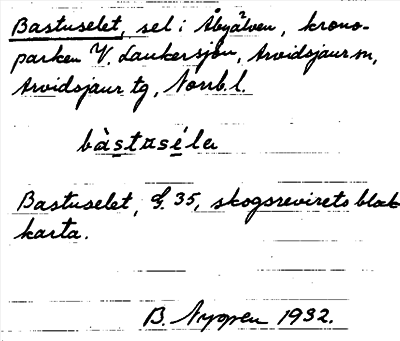 Bastuselet, sel i Åbyälven, krono-
parken V. Laukersjön, Arvidsjaur sn,
Arvidsjaur tg, Norrb. l.
bàstaséla
Bastuselet, G. 35, skogsrevirets blad
karta.
B. Nygren 1932.